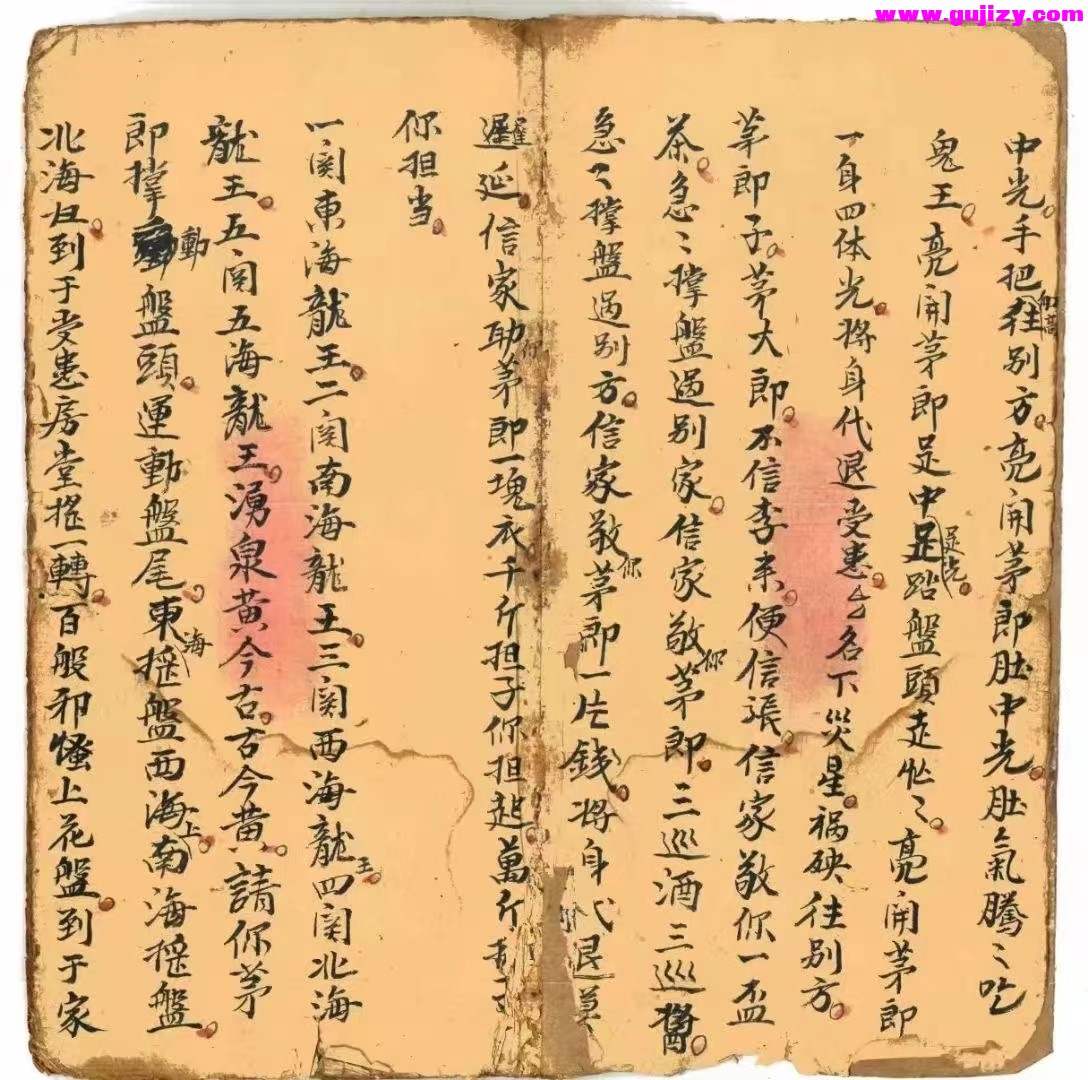 www.gujizy.com
中光手把往别方亮開茅郎肚中光肚氣騰〻吃
鬼王亮開茅郎足中足踏盤頭走忙〻亮開茅郎
一身四体光将身代退受患厶厶名下災星禍殃往别方
茅郎子茅大郎不信李來便信張信家敬你一盃
茶急〻撑盤過别家信家敬你茅郎三巡酒三巡醬
急〻撑盤過别方信家敬你茅郎一片錢将身代退莫
遲延信家助你茅郎一塊衣千斤担子你担起萬斤
你担当
一関東海龍王二関南海龍王三関西海龍王四関北海
龍王五関五海龍王湧泉黄今古古今黄請你茅
郎撑動盤頭運動盤尾東海摇盤西海上南海摇盤
北海归到于受患房堂摇一轉百般邪怪上花盤到于家